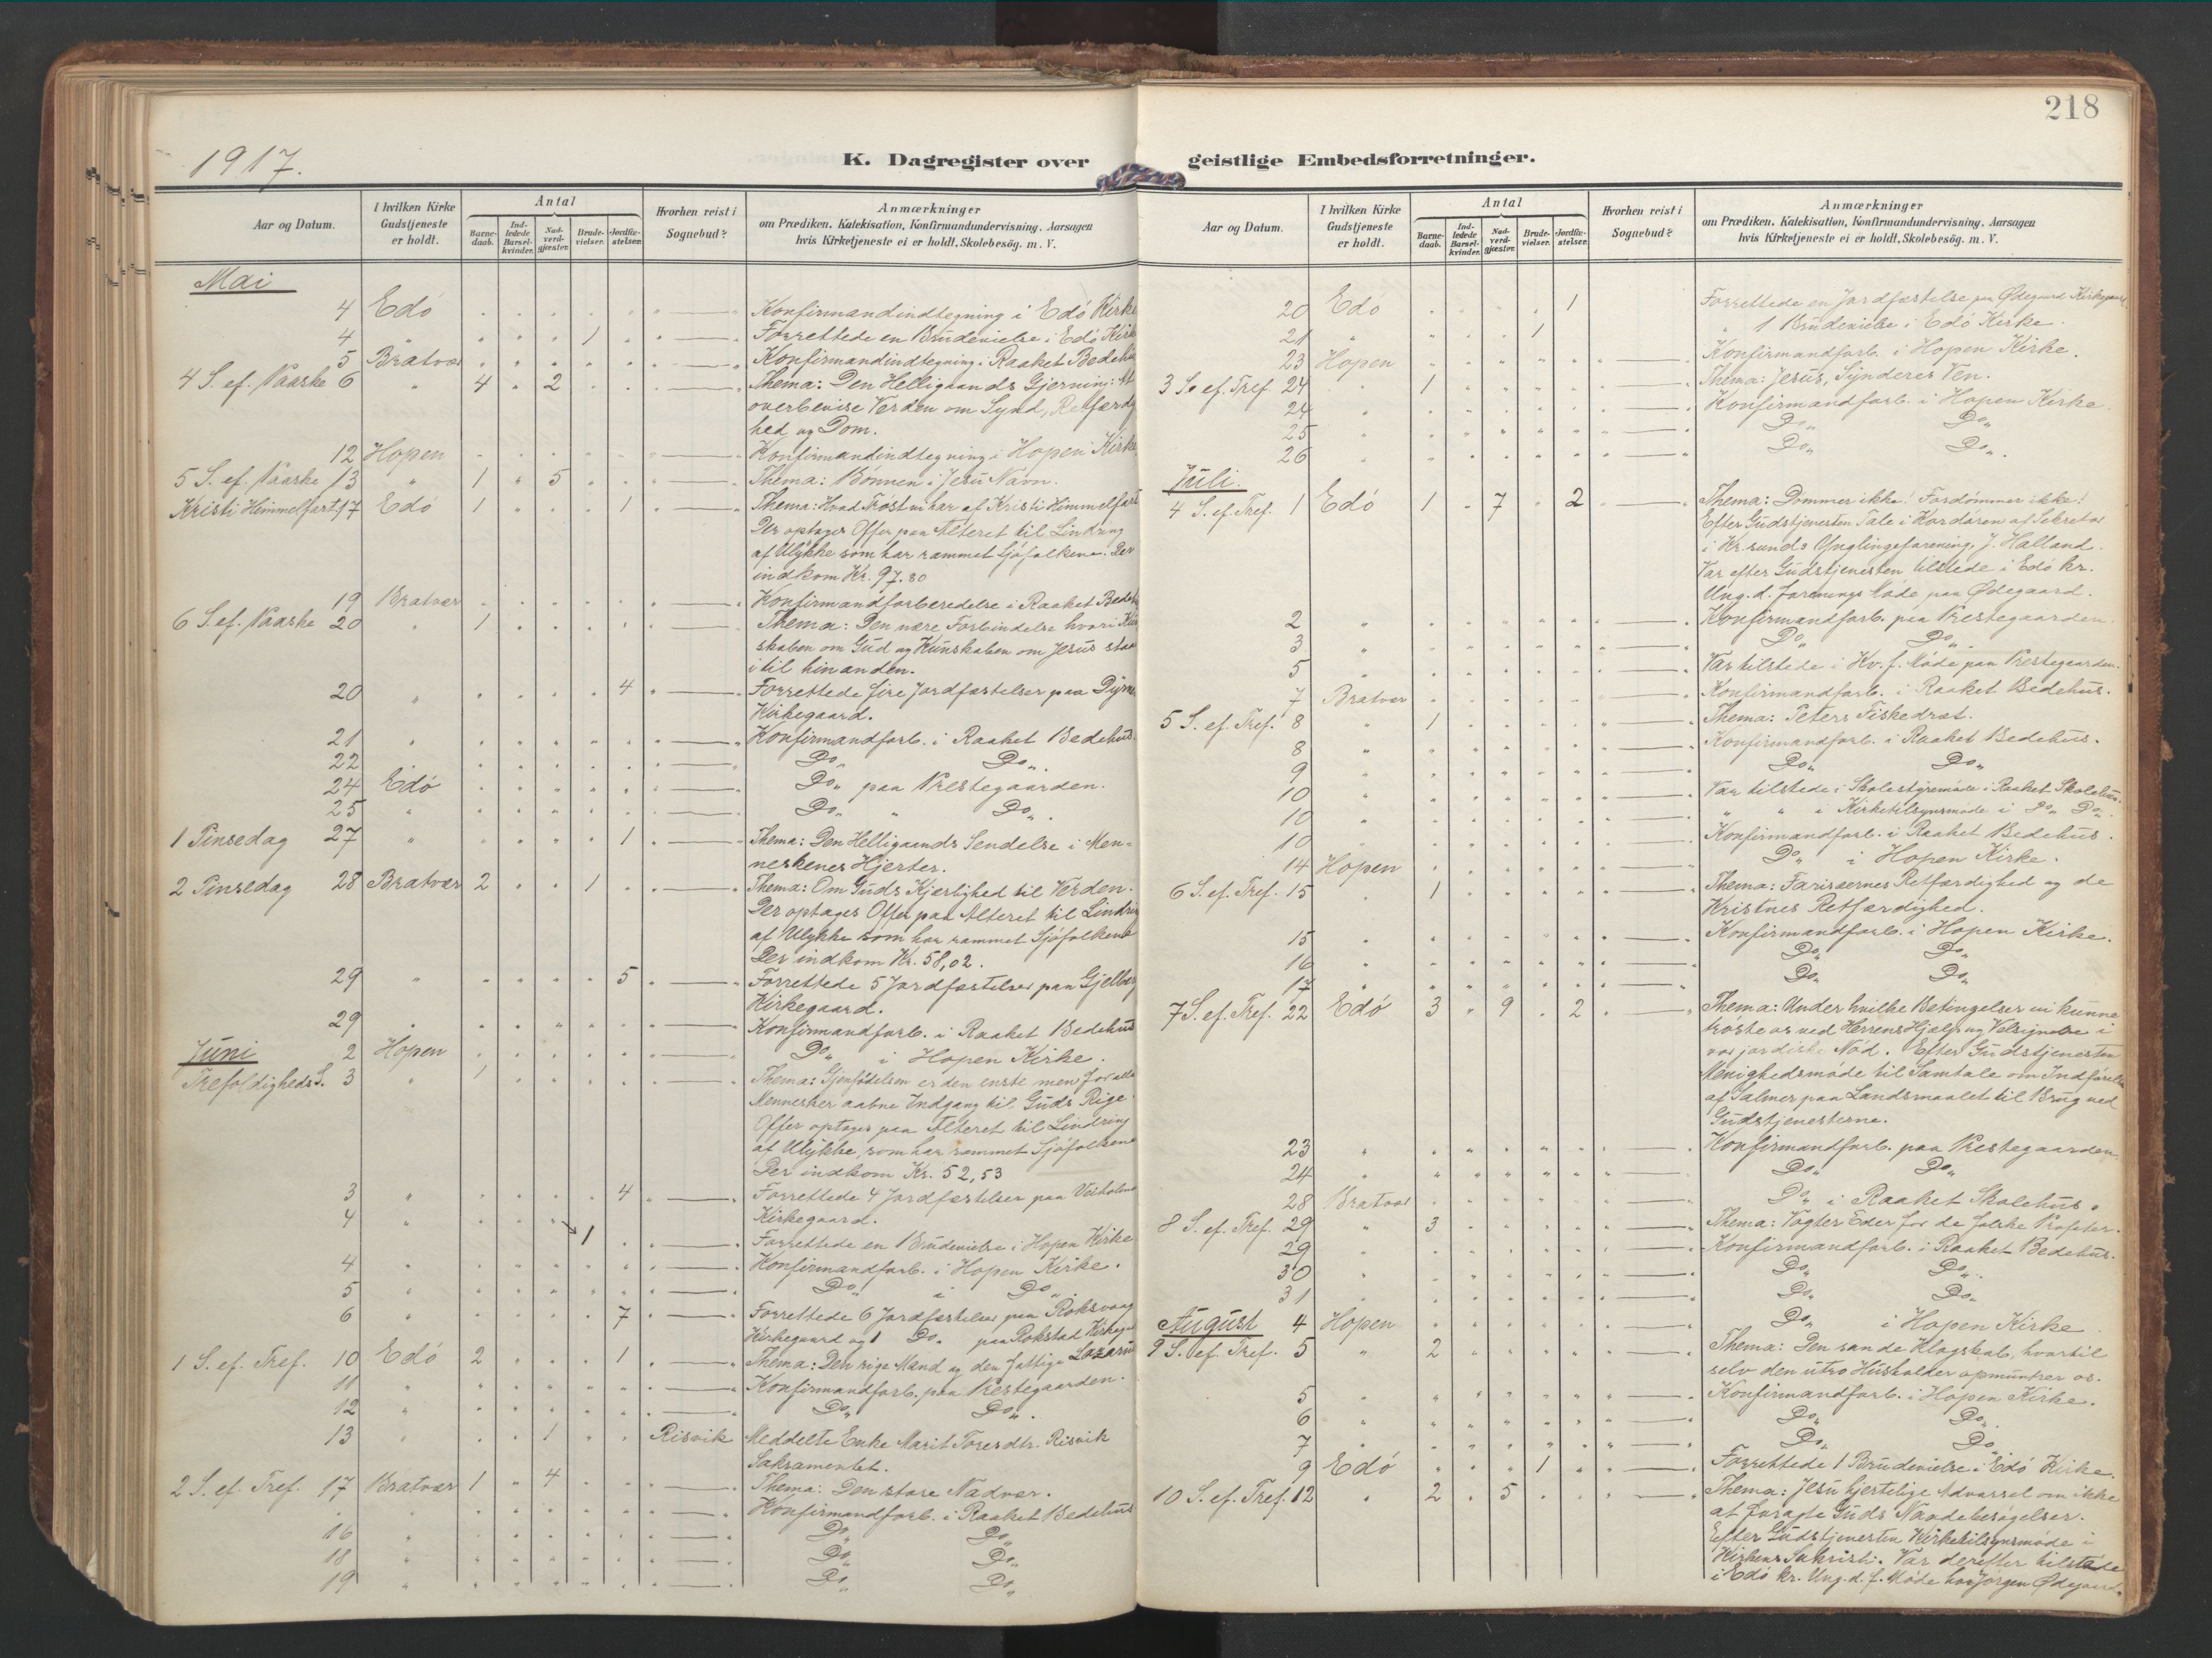 218
1917.
K. Dagregister over geistlige Embedsforretninger.
Aar og Datum. I hvilken Kirke Gudstjeneste er holdt. Antal Barne-daab. Ind-ledede Barsel-kvinder. Nad-verd-gjæster. Brude-vielser. Jordfæ-stelser. Hvorhen reist i Sognebud? Anmærkninger om Prædiken, Katekisation, Konfirmandundervisning, Aarsagen hvis Kirketjeneste ei er holdt, Skolebesög. m. V.
Mai
4 Edö Konfirmandindtegning i Edö Kirke
4 " 1 Forrettede en Brudevielse i Edö Kirke
5 Bratvær Konfirmandindtegning i Raaket Bedehus
4 S. ef. Paaske 6 " 4 " 2 Thema: Den Helligaands Gjerning: At
overbevise Verden om Synd, Retfærdig
hed og Dom.
12 Hopen Konfirmandindtegning i Hopen Kirke
5 S. ef. Paaske 13 " 1 " 5 Thema: Bönnen i Jesu Navn.
Kristi Himmelfart 17 Edö 1 1 Thema: Hvad Tröst vi har af Kristi Himmelfart
Der optages Offer paa Alteret til Lindring
af Ulykke som har rammet Sjöfolkene. Der
indkom Kr. 97.80
19 Bratvær Konfirmandforberedelse i Raaket Bedeh
6 S. ef. Paaske 20 " 1 Thema: Den nære Forbindelse hvori Kun
skaben om Gud og Kunskaben om Jesus staa
i til hinanden.
20 " 4 Forrettede fire Jordfæstelser paa Dyrnes
Kirkegaard.
21 " Konfirmandforb. i Raaket Bedehus.
22 " Do. Do.
24 Edö Do. paa Prestegaarden.
25 " Do. " Do.
1 Pinsedag 27 " 1 Thema: Den Helligaands Sendelse i Men-
neskenes Hjerter.
2 Pinsedag 28 Bratvær 2 1 Thema: Om Guds Kjerlighed til Verden.
Der optages Offer paa Alteret til Lindring
af Ulykke som har rammet Sjöfolkene
Der indkom Kr. 58,02.
29 " 5 Forrettede 5 Jordfæstelser paa Gjelberg
Kirkegaard.
29 " Konfirmandforb. i Raaket Bedehus
Juni 2 Hopen Do. i Hopen Kirke.
Trefoldigheds S. 3 " 1 Thema: Gjenfödelsen er den eneste men for alle
Mennesker aabne Indgang til Guds Rige.
Offer optages paa Alteret til Lindring
af Ulykke, som har rammet Sjöfolkene
Der indkom Kr. 52,53
3 " 4 Forrettede 4 Jordfæstelser paa Veiholmen
Kirkegaard.
4 " 1 Forrettede en 1 Brudevielse i Hopen Kirke
4 " Konfirmandforb. i Hopen Kirke.
5 " Do. i Do.
6 " 7 Forrettede 6 Jordfæstelser paa Roksvaag
Kirkegaard og 1 Do. paa Rokstad Kirkegd
1 S. ef. Tref. 10 Edö 2 1 Thema: Den rige Mand og den fattige Lazarus
11 " Konfirmandforb. paa Prestegaarden.
12 " Do. Do.
13 " 1 Risvik Meddelte Enke Marit Toresdtr. Risvik
Sakramentet.
2 S. ef. Tref. 17 Bratvær 1 " 4 Thema: Den store Nadver.
Konfirmandforb. i Raaket Bedehus
16 " Do. Do.
18 " Do. Do.
19 " Do. Do.
Aar og Datum. I hvilken Kirke Gudstjeneste er holdt. Antal Barne-daab. Ind-ledede Barsel-kvinder. Nad-verd-gjæster. Brude-vielser. Jordfæ-stelser. Hvorhen reist i Sognebud? Anmærkninger om Prædiken, Katekisation, Konfirmandundervisning, Aarsagen hvis Kirketjeneste ei er holdt, Skolebesög. m. V.
20 Edö 1 Forrettede en Jordfæstelse paa Ödegaard Kirkegaard.
21 " 1 " 1 Brudevielse i Edö Kirke.
23 Hopen Konfirmandforb. i Hopen Kirke.
3 S. ef. Tref. 24 " 1 Thema: Jesus, Synderes Ven.
24 " Konfirmandforb. i Hopen Kirke.
25 " Do. Do.
26 " Do. Do.
Juli.
4 S. ef. Tref. 1 Edö 1 " 7 2 Thema: Dommer ikke! Fordömmer ikke!
Efter Gudstjenesten Tale i Kordören af Sekretær
i Kr.sunds Ynglingeforening, J. Halland.
Var efter Gudstjenesten tilstede i Edö kr.
Ung. d. forenings Möde paa Ödegaard.
2 " Konfirmandforb. paa Prestegaarden.
3 " Do. Do.
5 " Var tilstede i Kv. f. Möde paa Prestegaarden.
7 Bratvær Konfirmandforb. i Raaket Bedehus.
5 S. ef. Tref. 8 " 1 Thema: Peters Fiskedræt.
8 " Konfirmandforb. i Raaket Bedehus.
9 " Do. Do.
10 " Var tilstede i Skolestyremöde i Raaket Skolehus.
10 " " " i Kirketilsynsmöde i Do. Do.
10 " Konfirmandforb. i Raaket Bedehus.
14 Hopen Do. i Hopen Kirke.
6 S. ef. Tref. 15 " 1 Thema: Farisæernes Retfærdighed og de
Kristnes Retfærdighed.
15 " Konfirmandforb. i Hopen Kirke.
16 " Do. Do.
17 " Do. Do.
7 S. ef. Tref. 22 Edö 3 " 9 2 Thema: Under hvilke Betingelser vi kunne
tröste os ved Herrens Hjælp og Velsignelse i
vor jordiske Nöd. Efter Gudstjenesten
Menighedsmöde til Samtale om Indförelse
af Salmer paa Landsmaalet til Brug ved
Gudstjenesterne.
23 " Konfirmandforb. paa Prestegaarden.
24 " Do. Do.
28 Bratvær Do. i Raaket Skolehus.
8 S. ef. Tref. 29 " 3 Thema: Vogter Eder for de falske Profeter.
29 " Konfirmandforb. i Raaket Bedehus.
30 " Do. Do.
31 " Do. Do.
August 4 Hopen Do. i Hopen Kirke.
9 S. ef. Tref. 5 " 2 Thema: Den sande Klogskab, hvortil
selv den utro Husholder opmuntrer os.
5 " Konfirmandforb. i Hopen Kirke.
6 " Do. Do.
7 " Do. Do.
9 Edö 1 Forrettede 1 Brudevielse i Edö Kirke.
10 S. ef. Tref. 12 " 2 " 5 Thema: Jesu hjertelige Advarsel om ikke
at foragte Guds Naadebesögelser.
Efter Gudstjenesten Kirketilsynsmöde i
Kirkens Sakristi. Var derefter tilstede
i Edö kr. Ung. d. f. Möde hos Jörgen Ödegaard.